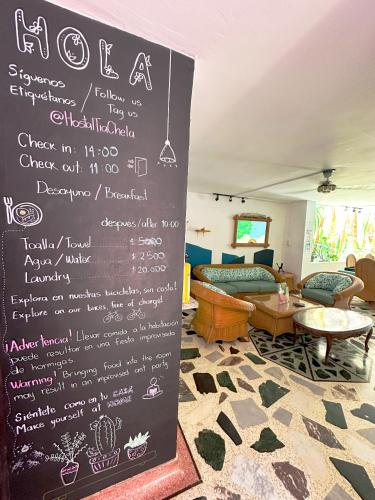 HOLA
Síguenos / Follow us
Etiquétanos / Tag us
@HostalTiaChela
Check in: 14:00
Check out: 11:00
Desayuno / Breakfast
después/after 10:00
Toalla/Towel $ 5000
Agua/Water $ 2500
Laundry $ 20.000
Explora en nuestras bicicletas, sin costo!
Explore on our bikes, free of charge!
¡Advertencia! Llevar comida a la habitación
puede resultar en una fiesta improvisada
de hormigas.
Warning! Bringing Food into the room
may result in an improvised ant party.
Siéntete como en tu CASA
Make yourself at HOME